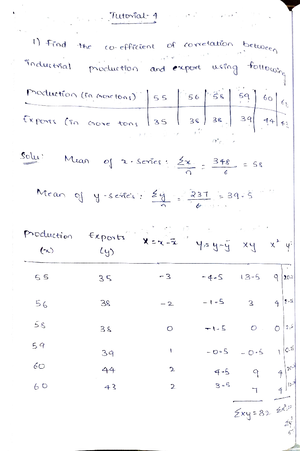 Tutorial-4
1) Find the co-efficient of correlation between
industrial production and export using following
production (in crore tons) | 55 | 56 | 58 | 59 | 60 |
Exports (in crore tons | 35 | 38 | 38 | 39 | 44 |
Solu: Mean of x-series: Σx/n = 348/6 = 58
Mean of y-series: Σy/n = 237/6 = 39.5
production (x) Exports (y) X=x-x̄ Y=y-ȳ xy x²
55 35 -3 -4.5 13.5 9
56 38 -2 -1.5 3 4
58 38 0 -1.5 0 0
59 39 1 -0.5 -0.5 1
60 44 2 4.5 9 4
60 43 2 3.5 7 4
Σxy=32